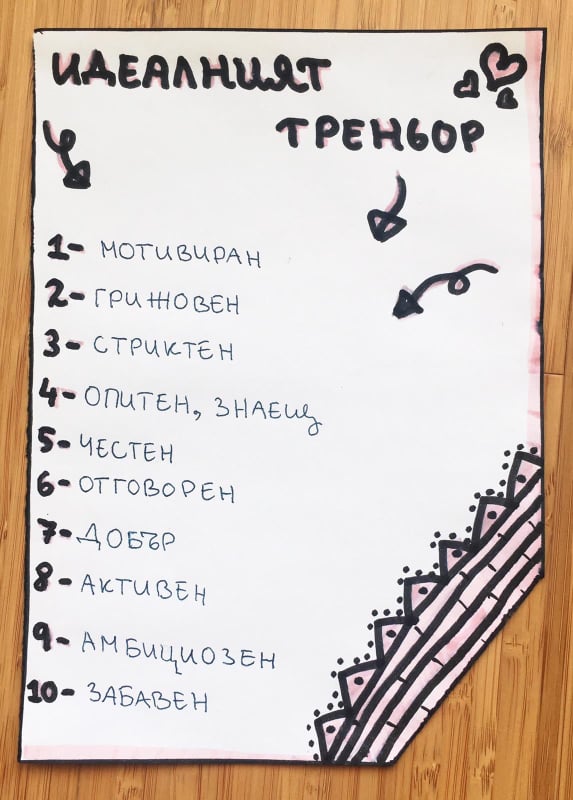 ИДЕАЛНИЯТ
ТРЕНЬОР
1- МОТИВИРАН
2- ГРИЖОВЕН
3- СТРИКТЕН
4- ОПИТЕН, ЗНАЕЩ
5- ЧЕСТЕН
6- ОТГОВОРЕН
7- ДОБЪР
8- АКТИВЕН
9- АМБИЦИОЗЕН
10- ЗАБАВЕН